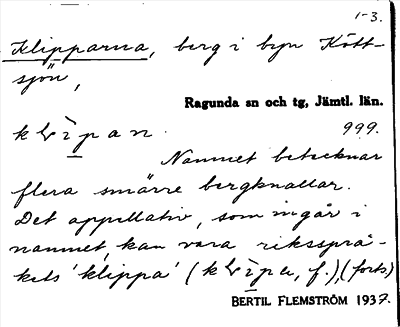 1-3.
Klipparna, berg i byn Kött-
sjön,
Ragunda sn och tg, Jämtl. län.
999.
Namnet betecknar
flera smärre bergknallar.
Det appellativ, som ingår i
namnet, kan vara rikssprå-
kets 'klippa' (forts)
BERTIL FLEMSTRÖM 1937.